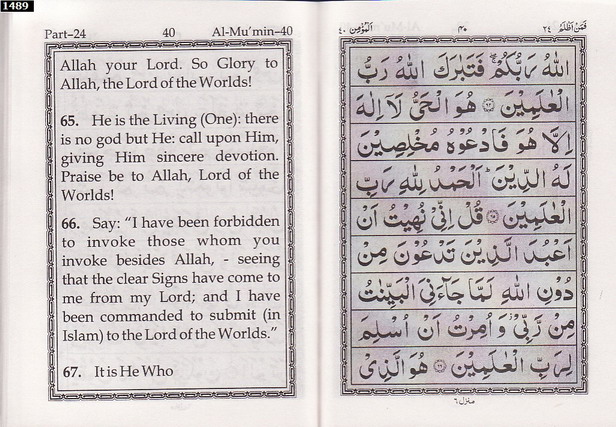 1489
Part-24 40 Al-Mu’min-40
Allah your Lord. So Glory to
Allah, the Lord of the Worlds!
65. He is the Living (One): there
is no god but He: call upon Him,
giving Him sincere devotion.
Praise be to Allah, Lord of the
Worlds!
66. Say: “I have been forbidden
to invoke those whom you
invoke besides Allah, - seeing
that the clear Signs have come to
me from my Lord; and I have
been commanded to submit (in
Islam) to the Lord of the Worlds.”
67. It is He Who
فَمَنْ اَظْلَمُ ٢٤ ٤٠ اَلْمُؤْمِن ٤٠
اللّٰهُ رَبُّكُمْ ۖ فَتَبٰرَكَ اللّٰهُ رَبُّ
الْعٰلَمِيْنَ ۝٦٤ هُوَ الْحَيُّ لَاۤ اِلٰهَ
اِلَّا هُوَ فَادْعُوْهُ مُخْلِصِيْنَ
لَهُ الدِّيْنَ ؕ اَلْحَمْدُ لِلّٰهِ رَبِّ
الْعٰلَمِيْنَ ۝٦٥ قُلْ اِنِّيْ نُهِيْتُ اَنْ
اَعْبُدَ الَّذِيْنَ تَدْعُوْنَ مِنْ
دُوْنِ اللّٰهِ لَمَّا جَآءَنِيَ الْبَيِّنٰتُ
مِنْ رَّبِّيْ ؗ وَ اُمِرْتُ اَنْ اُسْلِمَ
لِرَبِّ الْعٰلَمِيْنَ ۝٦٦ هُوَ الَّذِيْ
منزل ٦